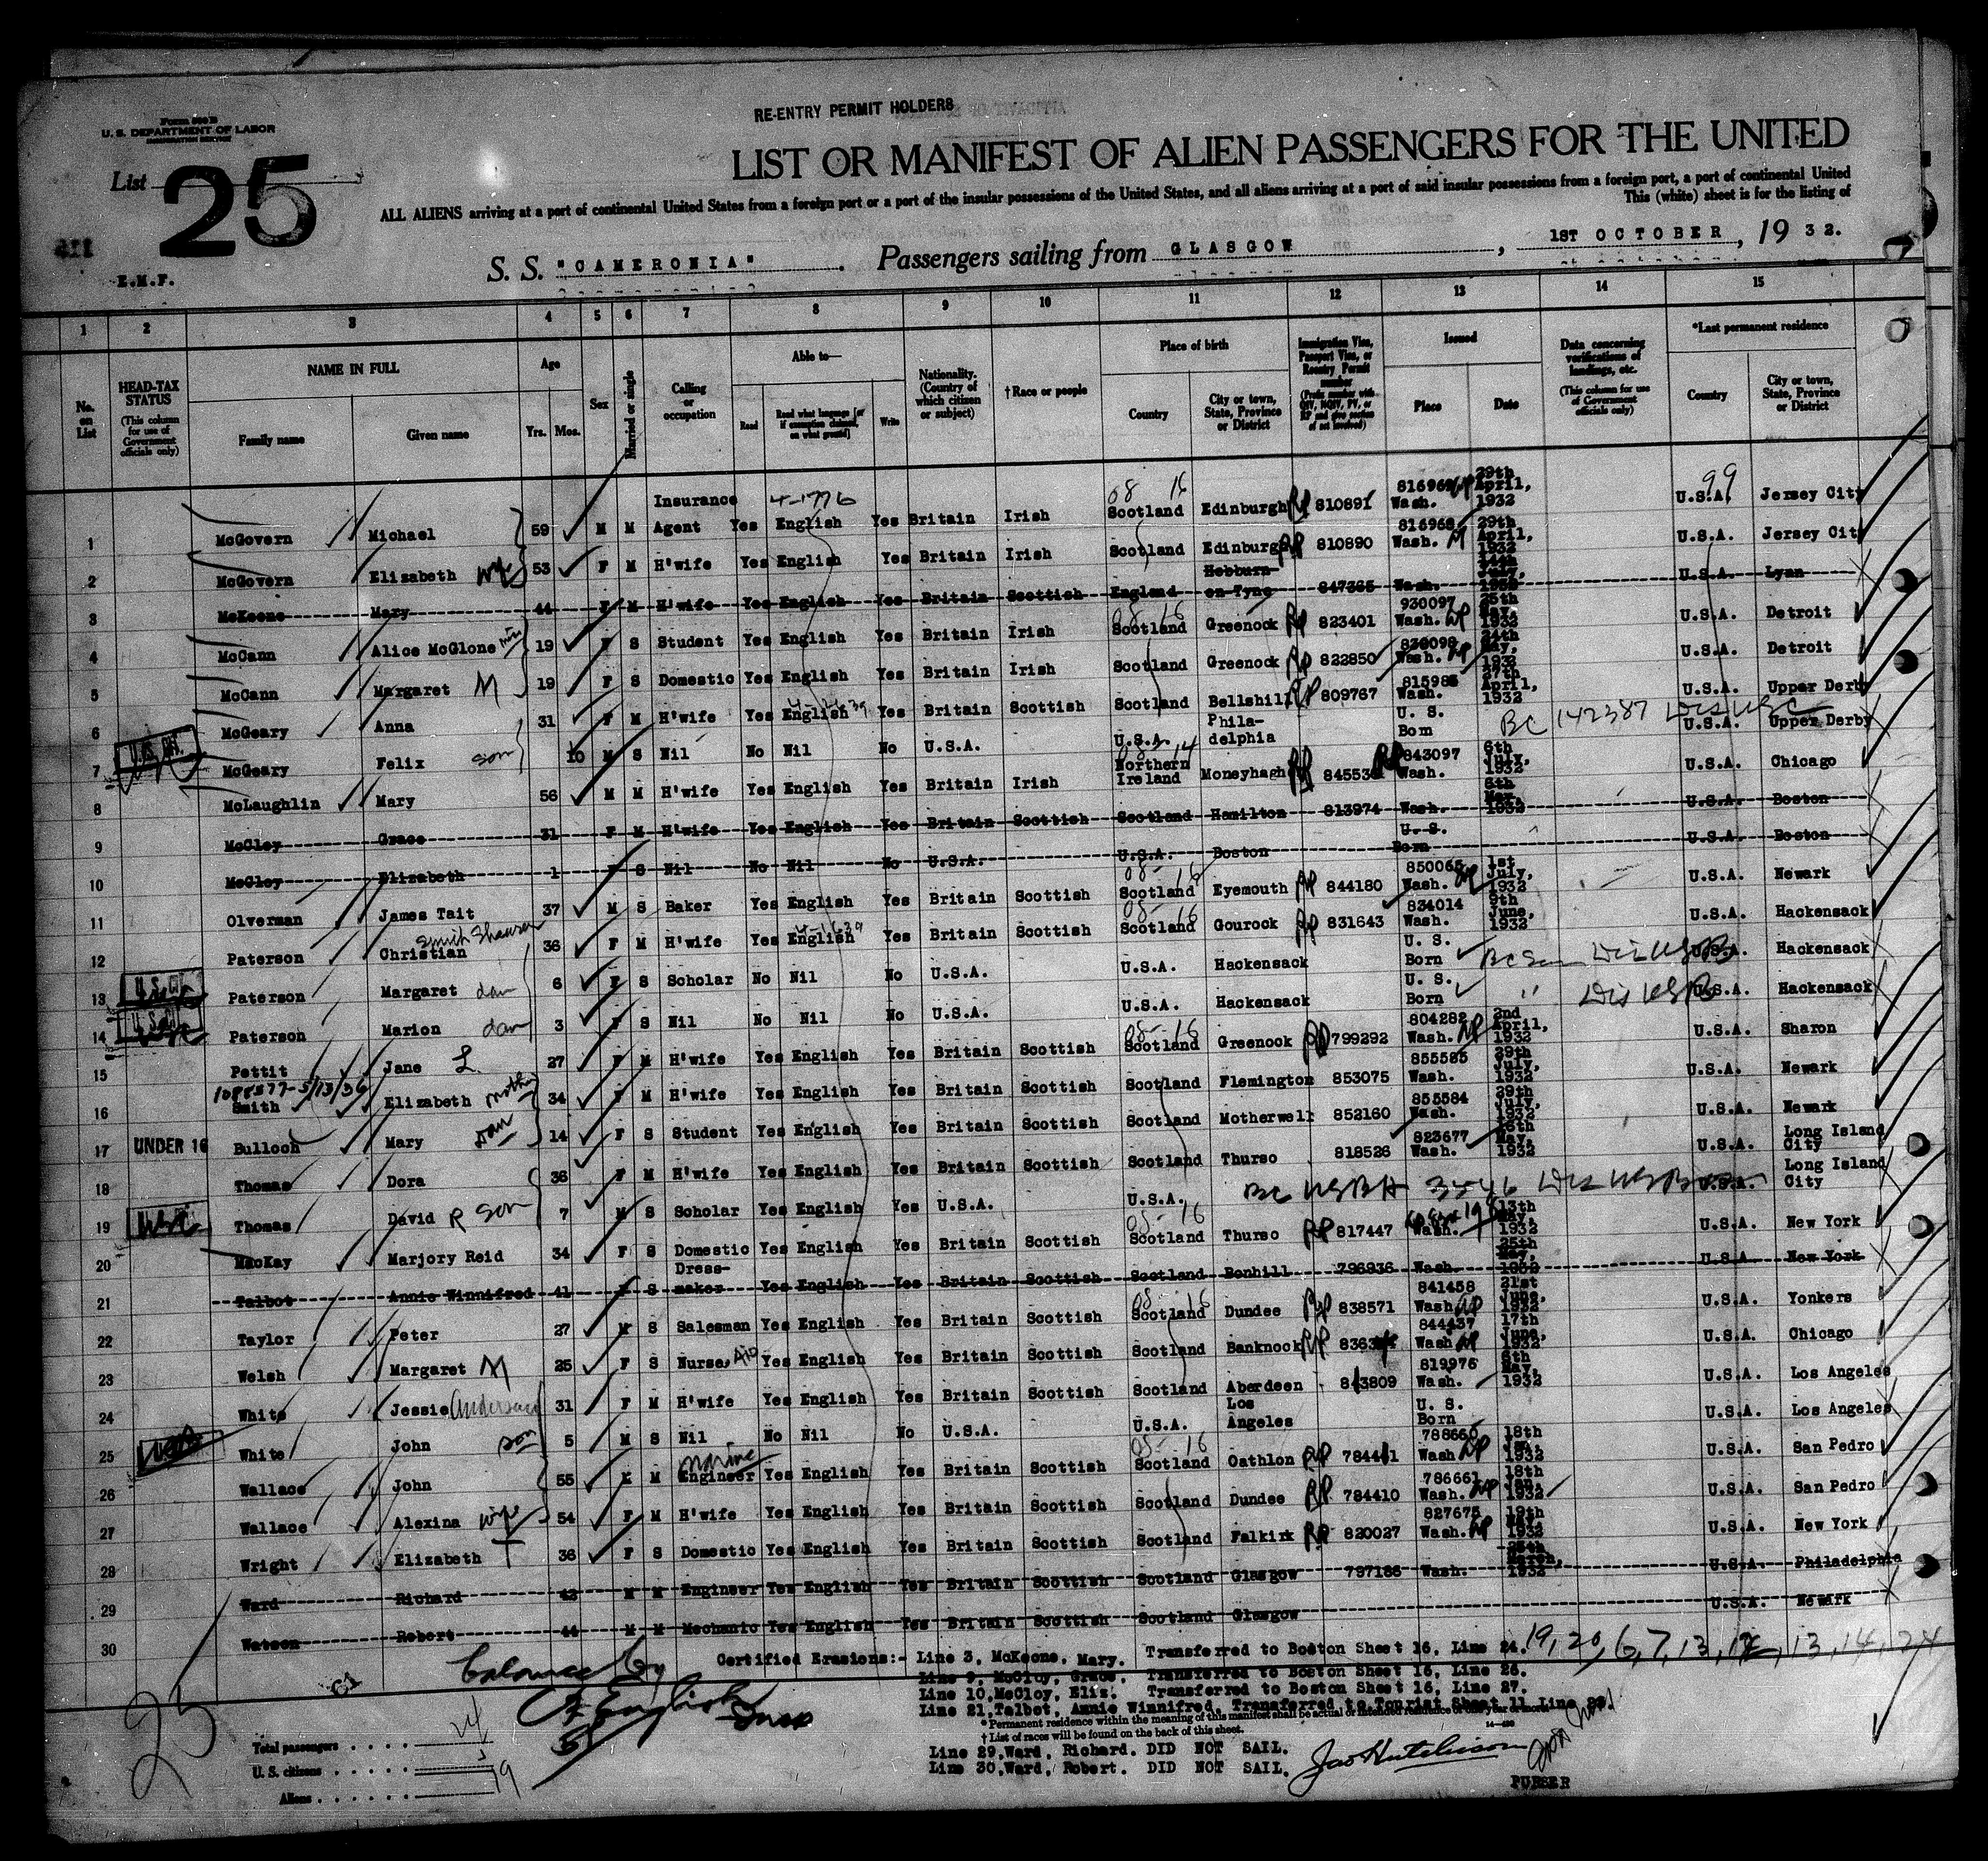 RE-ENTRY PERMIT HOLDERS
Form 500 B
U. S. DEPARTMENT OF LABOR
IMMIGRATION SERVICE
List 25
E.M.F.
LIST OR MANIFEST OF ALIEN PASSENGERS FOR THE UNITED
ALL ALIENS arriving at a port of continental United States from a foreign port or a port of the insular possessions of the United States, and all aliens arriving at a port of said insular possessions from a foreign port, a port of continental United
This (white) sheet is for the listing of
S. S. "CAMERONIA" . Passengers sailing from GLASGOW , 1ST OCTOBER , 1932.
1 2 3 4 5 6 7 8 9 10 11 12 13 14 15
No. on List
HEAD-TAX STATUS (This column for use of Government officials only)
NAME IN FULL Family name Given name
Age Yrs. Mos.
Sex
Married or single
Calling or occupation
Able to— Read Read what language [or if exemption claimed, on what ground] Write
Nationality. (Country of which citizen or subject)
†Race or people
Place of birth Country City or town, State, Province or District
Immigration Visa, Passport Visa, or Reentry Permit number (Prefix number with QIV, NQIV, PV, or RP and give section of act involved)
Issued Place Date
Data concerning verifications of landings, etc. (This column for use of Government officials only)
*Last permanent residence Country City or town, State, Province or District
1 McGovern Michael 59 M M Insurance Agent Yes English Yes Britain Irish Scotland Edinburgh RP 810891 816969 Wash. 29th April, 1932 U.S.A. Jersey City
2 McGovern Elizabeth wife 53 F M H'wife Yes English Yes Britain Irish Scotland Edinburgh RP 810890 816968 Wash. 29th April, 1932 U.S.A. Jersey City
3 McKeone Mary 44 F M H'wife Yes English Yes Britain Scottish England Hebburn-on-Tyne 847365 Wash. 14th July, 1932 U.S.A. Lynn
4 McCann Alice McGlone 19 F S Student Yes English Yes Britain Irish Scotland Greenock RP 823401 930097 Wash. 25th May, 1932 U.S.A. Detroit
5 McCann Margaret M 19 F S Domestic Yes English Yes Britain Irish Scotland Greenock RP 822850 830098 Wash. 24th May, 1932 U.S.A. Detroit
6 McGeary Anna 31 F M H'wife Yes English Yes Britain Scottish Scotland Bellshill RP 809767 815985 Wash. 27th April, 1932 U.S.A. Upper Derby
7 McGeary Felix son 10 M S Nil No Nil No U.S.A. U.S.A. Phila-delphia U. S. Born BC 142387 U.S.A. Upper Derby
8 McLaughlin Mary 56 M M H'wife Yes English Yes Britain Irish Northern Ireland Moneyhagh RP 84553 843097 Wash. 6th July, 1932 U.S.A. Chicago
9 McCloy Grace 31 F M H'wife Yes English Yes Britain Scottish Scotland Hamilton 813974 Wash. 5th May, 1932 U.S.A. Boston
10 McCloy Elizabeth 1 F S Nil No Nil No U.S.A. U.S.A. Boston U. S. Born U.S.A. Boston
11 Olverman James Tait 37 M S Baker Yes English Yes Britain Scottish Scotland Eyemouth RP 844180 850065 Wash. 1st July, 1932 U.S.A. Newark
12 Paterson Christian 36 F M H'wife Yes English Yes Britain Scottish Scotland Gourock RP 831643 834014 Wash. 9th June, 1932 U.S.A. Hackensack
13 Paterson Margaret dau 6 F S Scholar No Nil No U.S.A. U.S.A. Hackensack U. S. Born U.S.A. Hackensack
14 Paterson Marion dau 3 F S Nil No Nil No U.S.A. U.S.A. Hackensack U. S. Born U.S.A. Hackensack
15 Pettit Jane L 27 F M H'wife Yes English Yes Britain Scottish Scotland Greenock RP 799292 804282 Wash. 2nd April, 1932 U.S.A. Sharon
16 Smith Elizabeth mother 34 F M H'wife Yes English Yes Britain Scottish Scotland Flemington 853075 855585 Wash. 29th July, 1932 U.S.A. Newark
17 UNDER 16 Bulloch Mary dau 14 F S Student Yes English Yes Britain Scottish Scotland Motherwell 852160 855584 Wash. 29th July, 1932 U.S.A. Newark
18 Thomas Dora 36 F M H'wife Yes English Yes Britain Scottish Scotland Thurso 818526 823677 Wash. May, 1932 U.S.A. Long Island City
19 Thomas David R son 7 M S Scholar Yes English Yes U.S.A. U.S.A. U.S.A. Long Island City
20 MacKay Marjory Reid 34 F S Domestic Yes English Yes Britain Scottish Scotland Thurso RP 817447 Wash. 13th May, 1932 U.S.A. New York
21 Talbot Annie Winnifred 41 F S Dress-maker Yes English Yes Britain Scottish Scotland Bonhill 796936 Wash. 25th May, 1932 U.S.A. New York
22 Taylor Peter 27 M S Salesman Yes English Yes Britain Scottish Scotland Dundee RP 838571 841458 Wash 21st June, 1932 U.S.A. Yonkers
23 Welsh Margaret M 25 F S Nurse Yes English Yes Britain Scottish Scotland Banknock RP 844437 Wash 17th June, 1932 U.S.A. Chicago
24 White Jessie Anderson 31 F M H'wife Yes English Yes Britain Scottish Scotland Aberdeen 813809 819976 Wash. 6th May, 1932 U.S.A. Los Angeles
25 White John son 5 M S Nil No Nil No U.S.A. U.S.A. Los Angeles U. S. Born U.S.A. Los Angeles
26 Wallace John 55 M M marine Engineer Yes English Yes Britain Scottish Scotland Cathlon RP 784411 78866 Wash 18th Jan, 1932 U.S.A. San Pedro
27 Wallace Alexina wife 54 F M H'wife Yes English Yes Britain Scottish Scotland Dundee RP 784410 786661 Wash. 18th Jan, 1932 U.S.A. San Pedro
28 Wright Elizabeth T 36 F S Domestic Yes English Yes Britain Scottish Scotland Falkirk RP 820027 827675 Wash. 19th May, 1932 U.S.A. New York
29 Ward Richard 43 M M Engineer Yes English Yes Britain Scottish Scotland Glasgow 797186 Wash. 25th March, 1932 U.S.A. Philadelphia
30 Watson Robert 44 M M Mechanic Yes English Yes Britain Scottish Scotland Glasgow U.S.A. Newark
Certified Erasions:- Line 3, McKeone, Mary. Transferred to Boston Sheet 16, Line 24.
Line 9, McCloy, Grace, Transferred to Boston Sheet 16, Line 26.
Line 10, McCloy, Eliz. Transferred to Boston Sheet 16, Line 27.
Line 21, Talbot, Annie Winnifred, Transferred to Tourist Sheet 11 Line
* Permanent residence within the meaning of this manifest shall be actual or intended residence of one year or more.
† List of races will be found on the back of this sheet.
Line 29, Ward, Richard. DID NOT SAIL.
Line 30, Ward, Robert. DID NOT SAIL.
Jas Hutchison
PURSER
Total passengers 24
U. S. citizens 5
Aliens 19
25